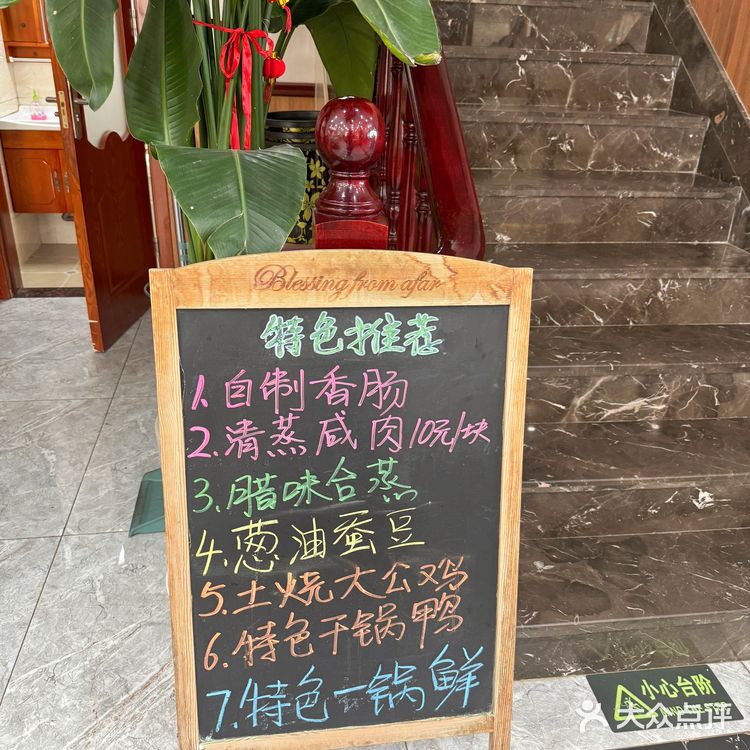 Blessing from afar
特色推荐
1.自制香肠
2.清蒸咸肉10元/块
3.腊味合蒸
4.葱油蚕豆
5.土烧大公鸡
6.特色干锅鸭
7.特色一锅鲜
小心台阶
大众点评